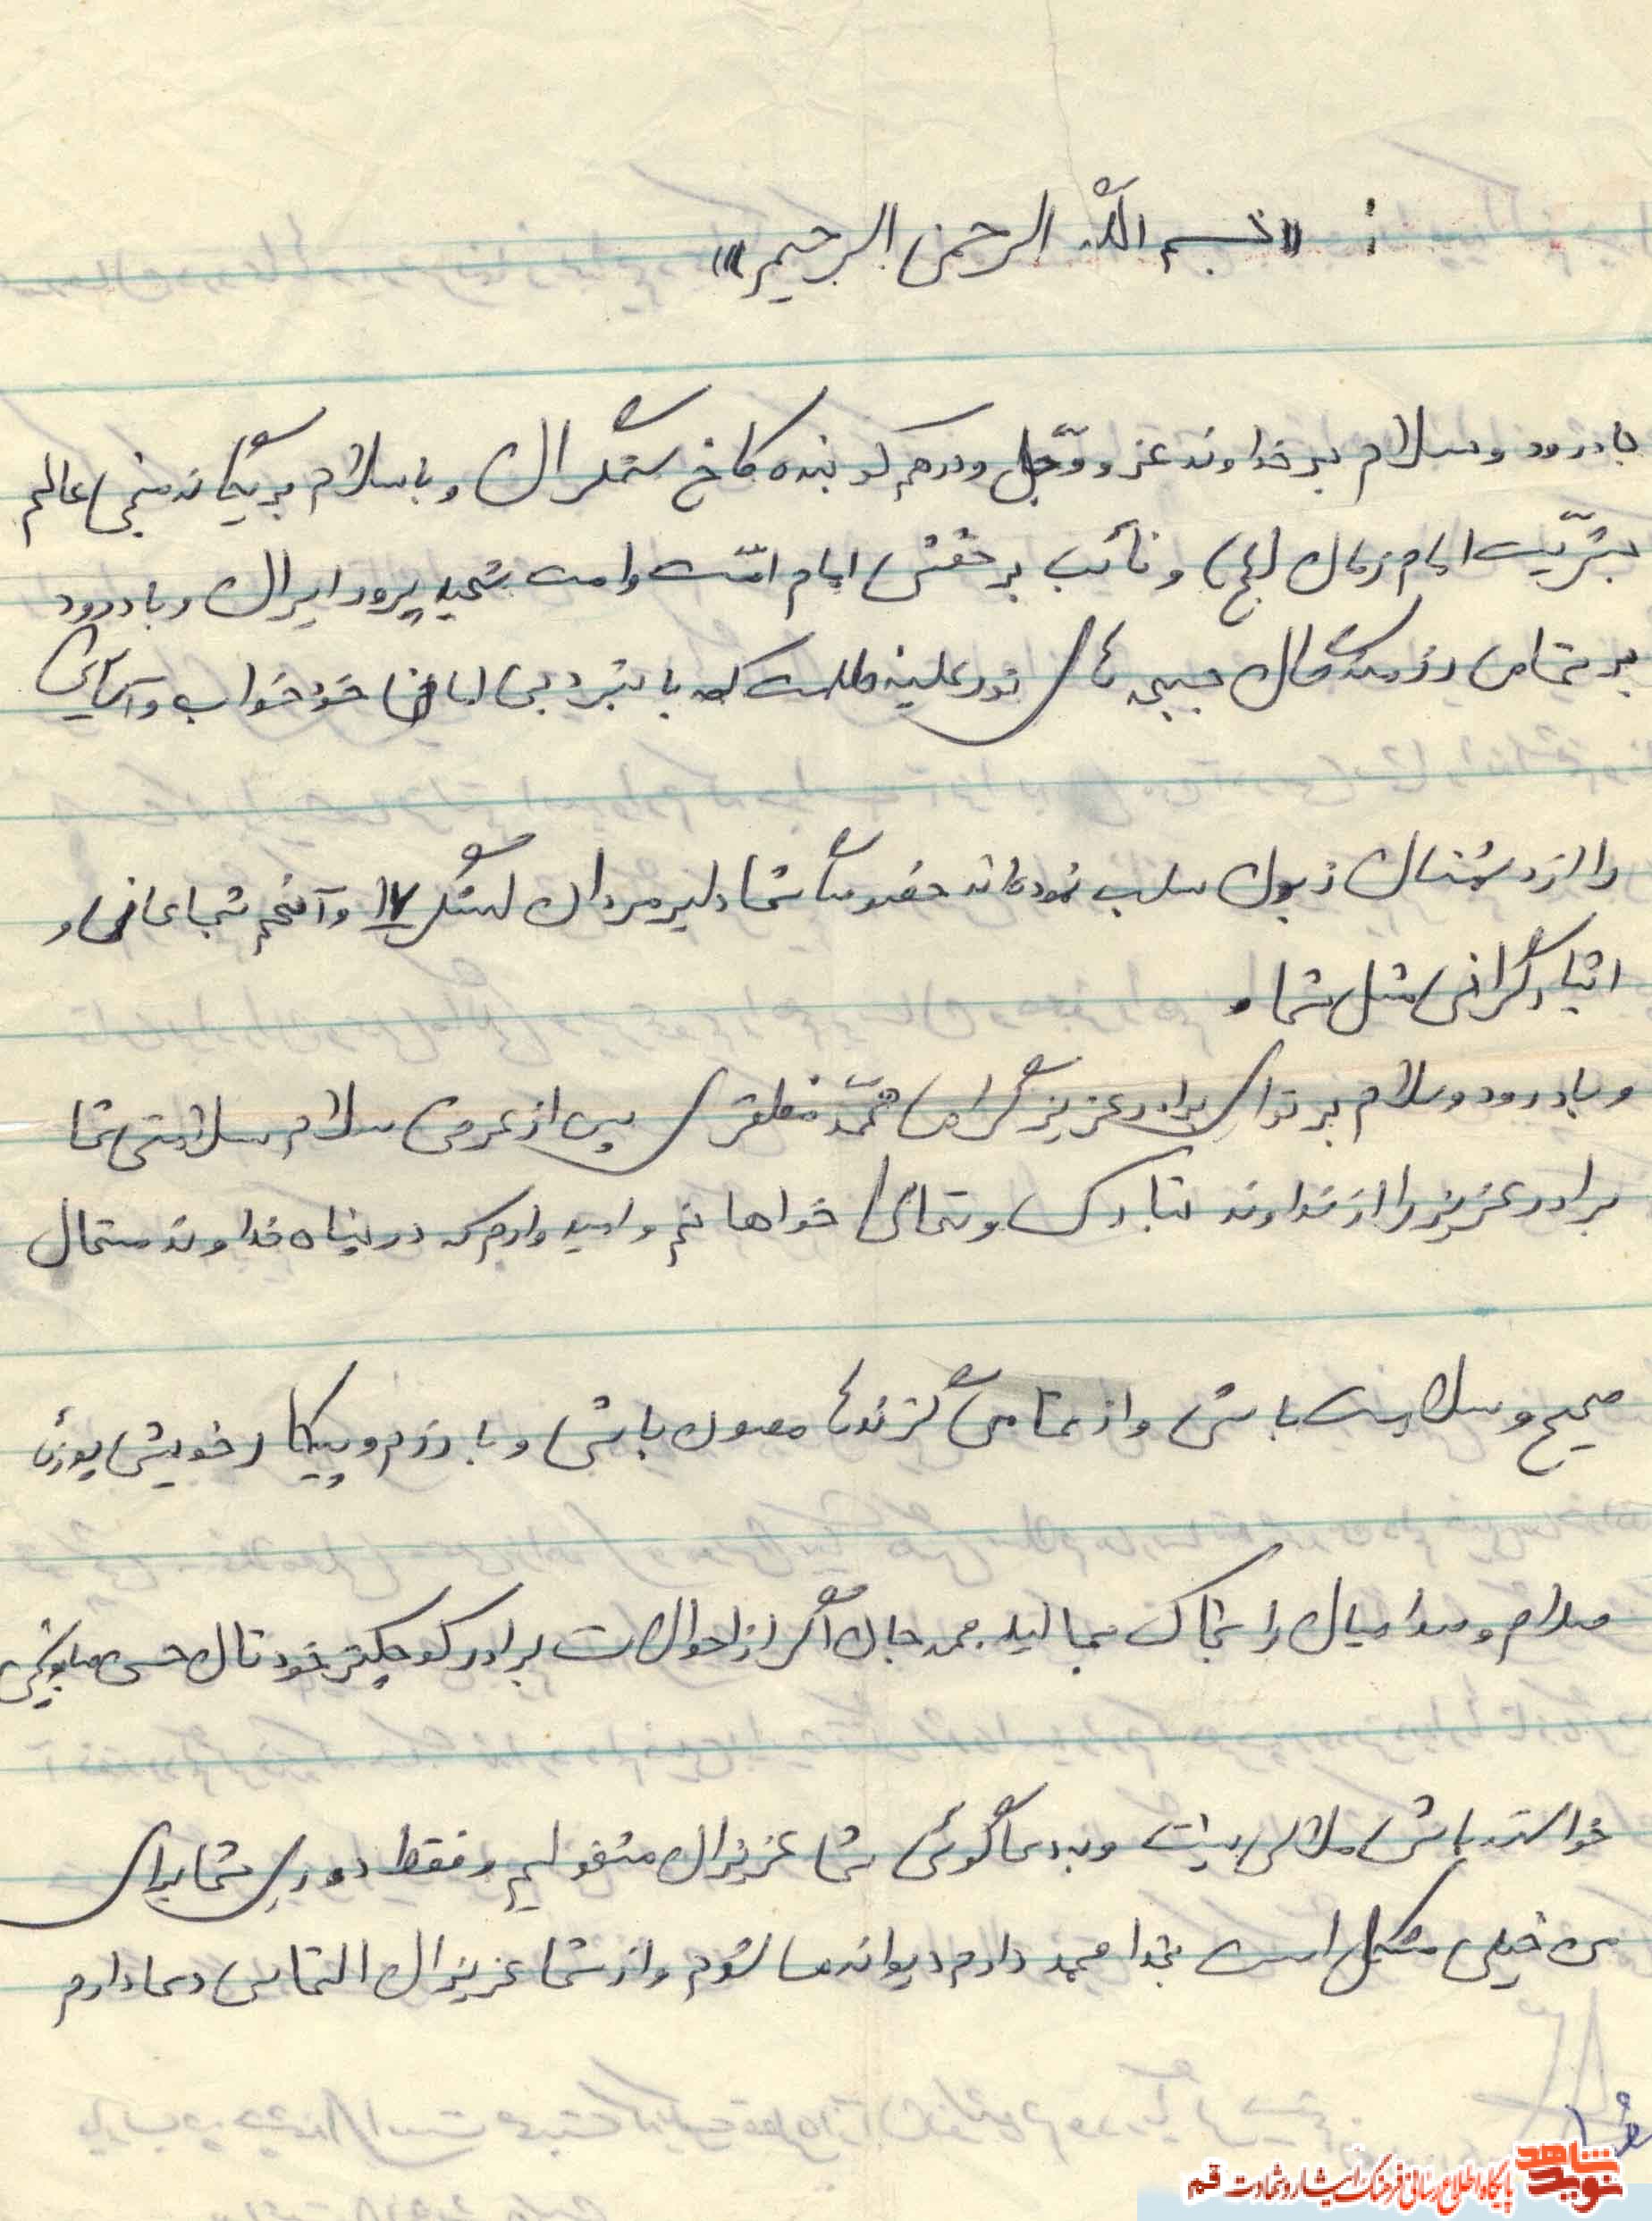 : «بسم الله الرحمن الرحیم»
با درود و سلام بر خداوند عز و وجّل و درهم کوبنده کاخ ستمگران و با سلام بر یگانه منجی عالم
بشریّت امام زمان (عج) و نائب بر حقش امام امّت و امت شهید پرور ایران و با درود
بر تمامی رزمندگان جبهه های نور علیه ظلمت که با نبرد بی امان خود خواب و آسایش
را از دشمنان زبون سلب نموده اند خصوصاً شما دلیر مردان لشگر ۱۷ و آنهم شجاعانی و
ایثارگرانی مثل شما و
و با درود و سلام بر تو ای برادر عزیز گرامی محمّد مظفری پس از عرض سلام سلامتی شما
برادر عزیز را از خداوند تبارک و تعالی خواهانم و امیدوارم که در پناه خداوند متعال
صحیح و سلامت باشی و از تمامی گزندها مصون باشی و با رزم و پیکار خویش پوزه
صدام و صدامیان را بخاک بمالید. محمد جان اگر از احوالات برادر کوچکتر خودتان حسن
خواسته باشی ملالی نیست و بدعاگوئی شما عزیزان مشغولیم و فقط دوری شما برای
من خیلی مشکل است بخدا محمد دارم دیوانه میشوم و از شما عزیزان التماس دعا دارم
نوید شاهد پایگاه اطلاع رسانی فرهنگ ایثار و شهادت قم